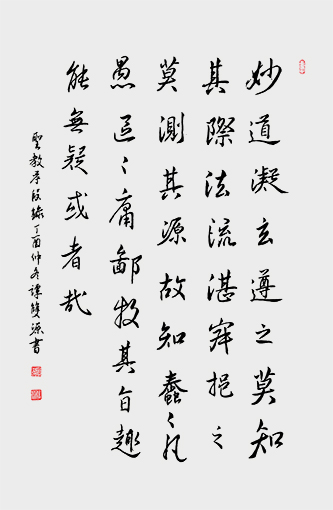 妙道凝玄遵之莫知
其際法流湛寂挹之
莫測其源故知蠢〻凡
愚區〻庸鄙投其旨趣
能無疑或者哉
聖教序段錄丁酉仲冬譚雙源書